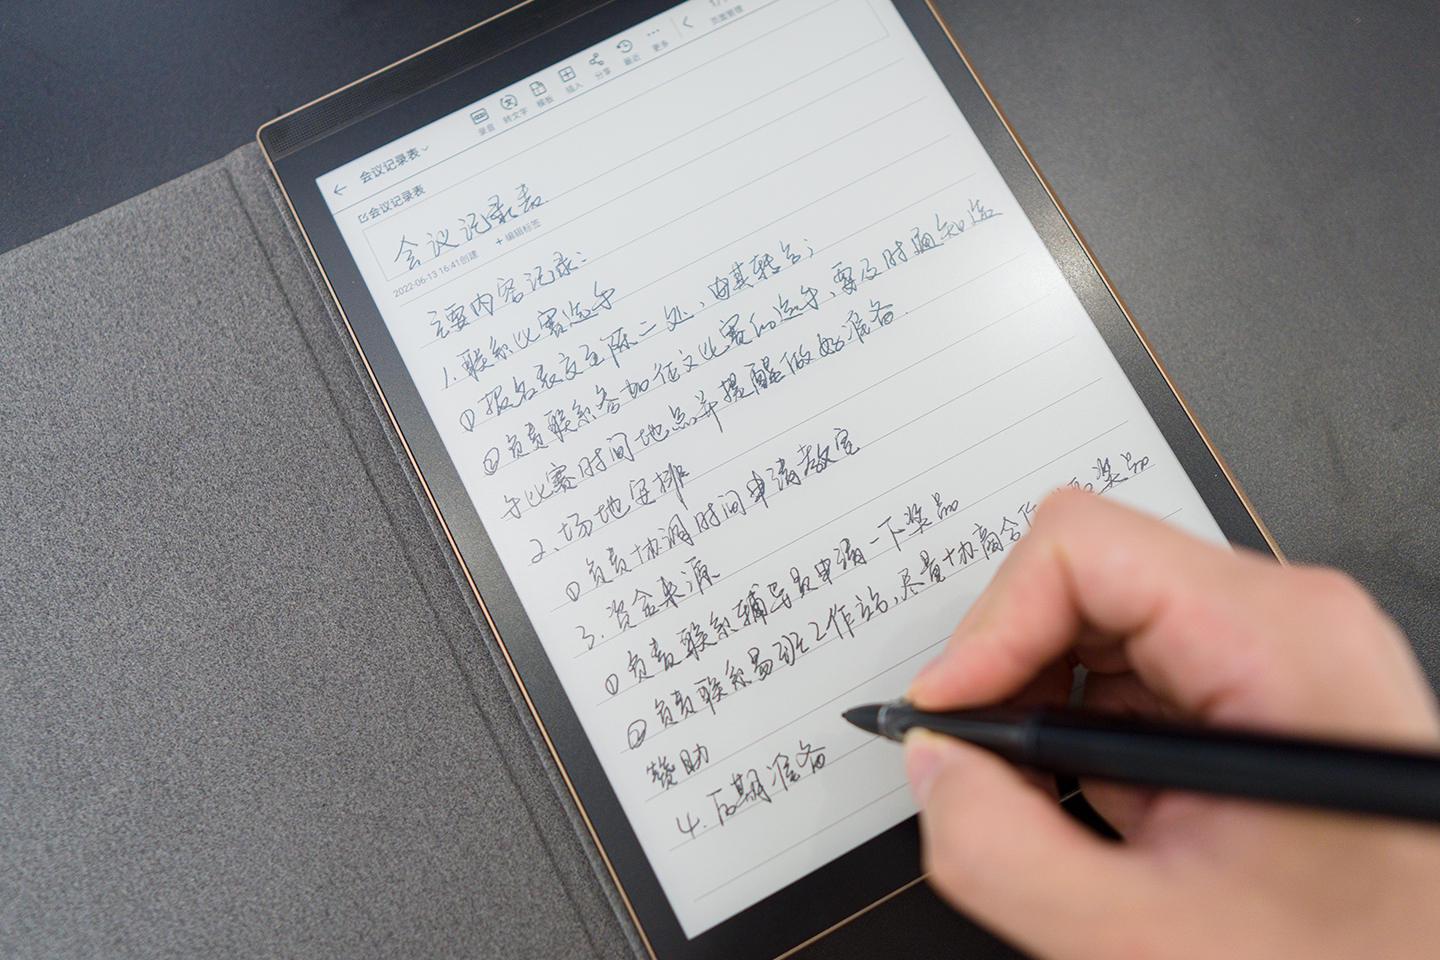 会议记录表
录音 转文字 模板 插入 分享 最近 更多 页面管理
会议记录表
会议记录表
2022-06-13 16:41创建 + 编辑标签
主要内容记录:
1.联系比赛选手
①报名表交至陈二处,由其转会;
②负责联系参加征文比赛的选手,要及时通知选
手比赛时间地点并提醒做好准备.
2.场地安排
①负责协调时间申请教室
3.资金来源
①负责联系辅导员申请一下奖品
②负责联系易班工作站,尽量协商合作 奖品
赞助
4.后期准备